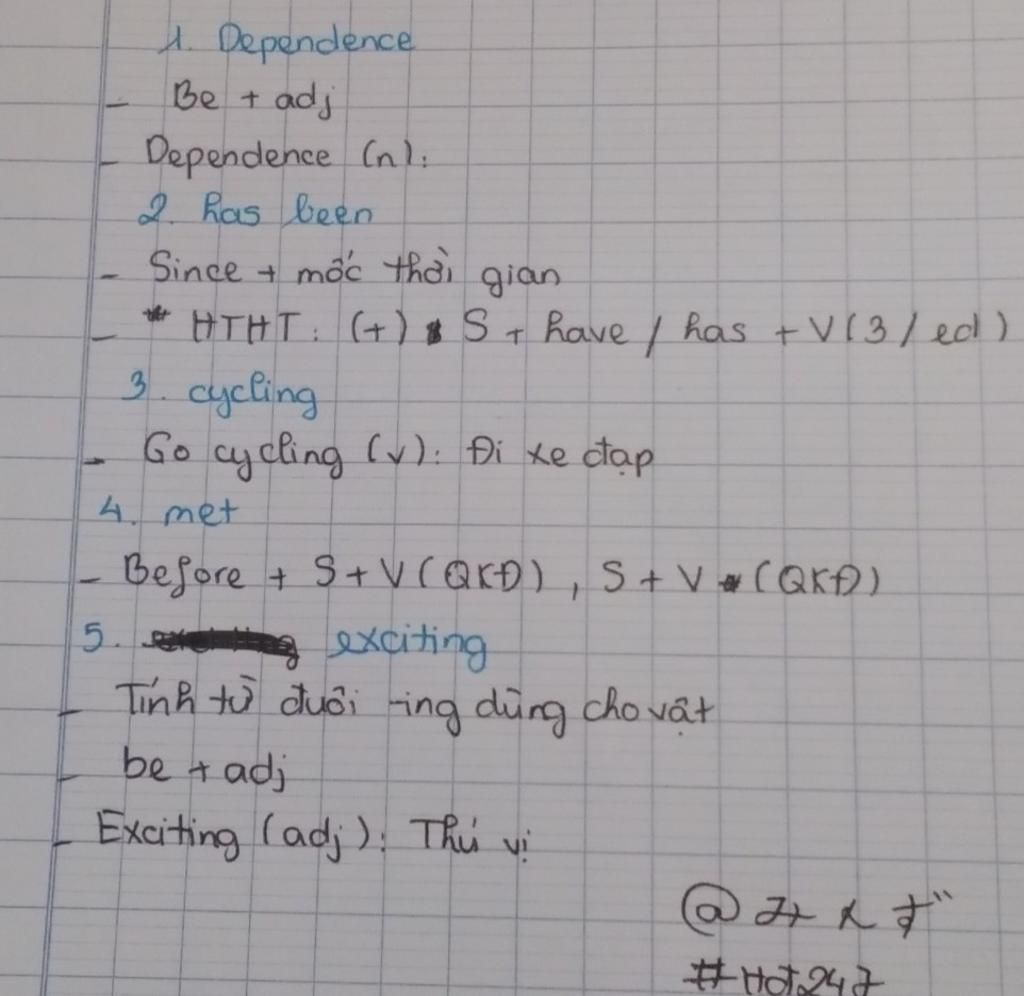 1. Dependence
- Be + adj
- Dependence (n):
2. has been
- Since + mốc thời gian
- * HTHT: (+) S + have / has + V(3/ed)
3. cycling
- Go cycling (v): Đi xe đạp
4. met
- Before + S + V (QKĐ), S + V (QKĐ)
5. exciting
- Tính từ đuôi -ing dùng cho vật
- be + adj
- Exciting (adj): Thú vị
#Hot247